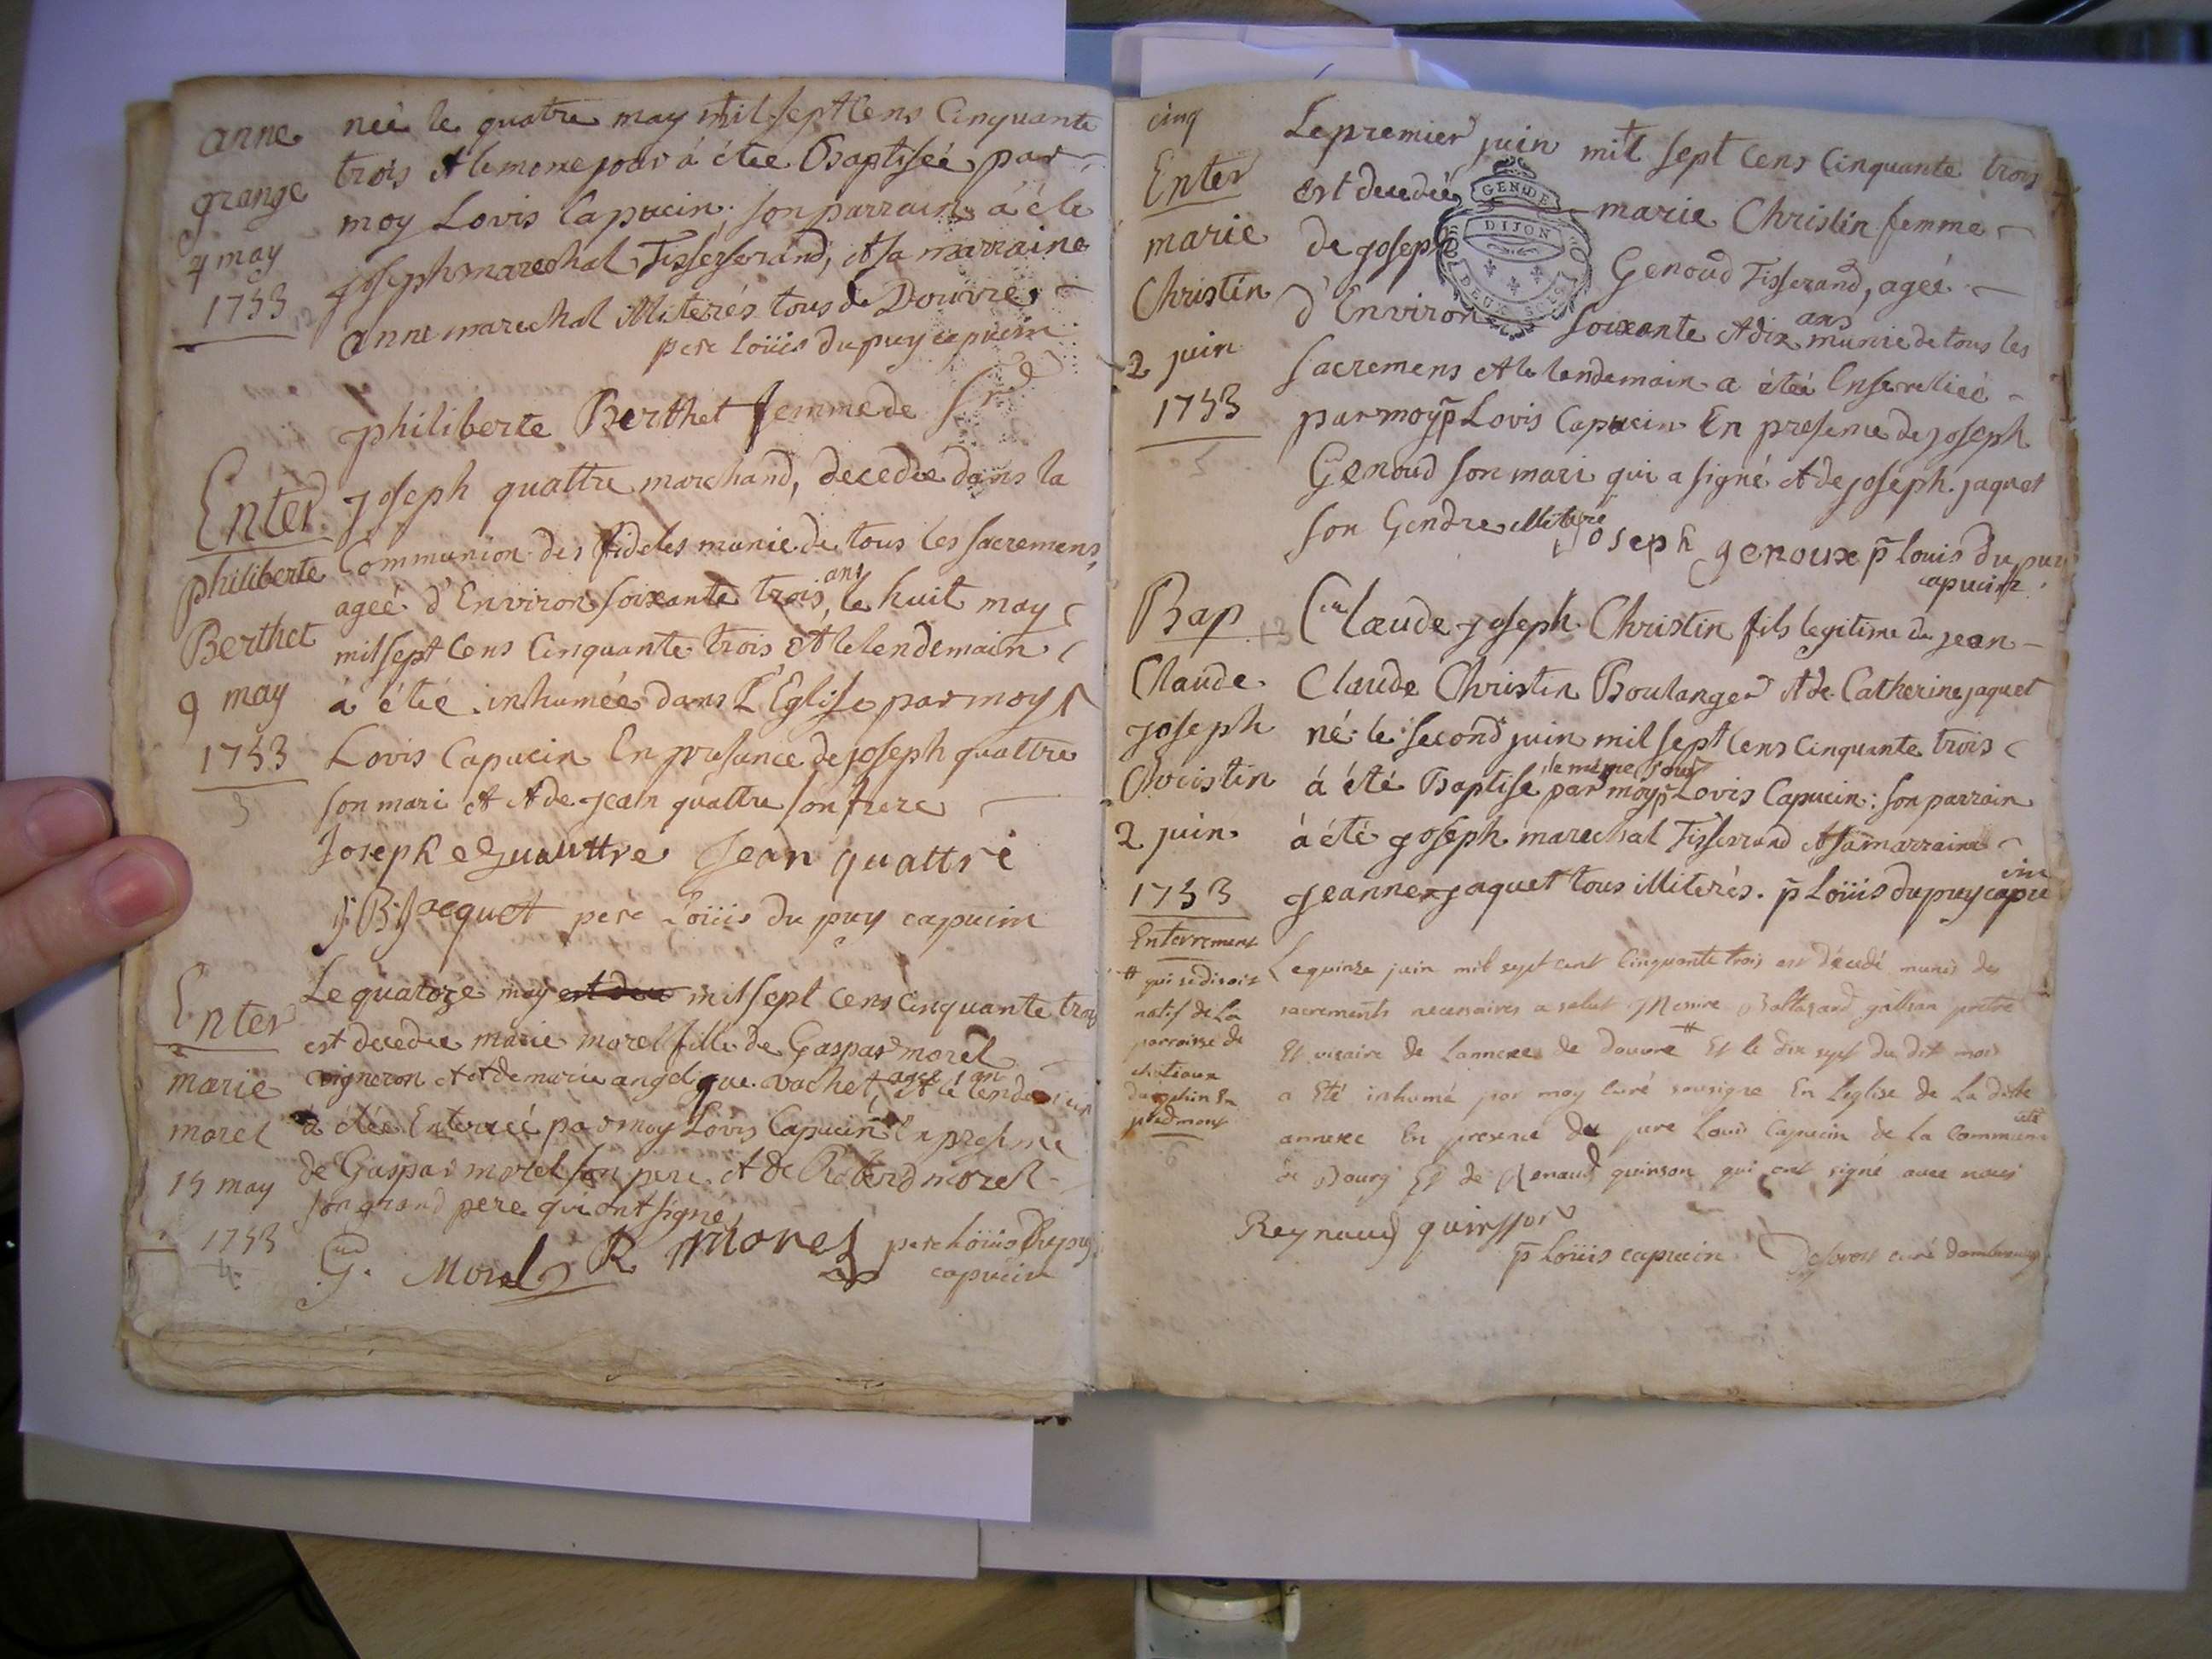 anne
grange
4 may
1753
née le quatre may mil sept Cens Cinquante
trois & le meme jour á étée Baptiseé par
moy Lovis Capucin; son parrain á éte
joseph marechal Tisserand, & sa marraine
anne marechal illiterés tous de Douvre
pere loüis dupuy capucin
philiberte Berthet femme de Sr
Enter
philiberte
Berthet
9 may
1753
3
joseph quattre marchand, decedée dans la
Communion des fideles munie de tous les sacremens,
ageé d'Environ soixante trois ans, le huit may
mil sept Cens Cinquante trois & le lendemain
á étée inhumée dans L'Eglise par moy
Lovis Capucin En presance de joseph quattre
son mari & & de jean quattre son frere
Joseph quauttre Jean quattre
j: B: Jacquet pere Loüis du puy capucin
Enter
marie
morel
15 may
1753
4
Le quatorze may est dece mil sept Cens Cinquante trois
est decedée marie morel fille de Gaspar morel
vigneron & & de marie angelique vachet, agée 1 an & le lendemain
á étée Enterreé par moy Lovis Capucin En presence
de Gaspar morel son pere & de Roberd morel
son grand pere qui ont signe
G. Morel R Morel pere Loüis Dupuy
capucin
cinq
Enter
marie
Christin
2 juin
1753
5
Le premier juin mil sept Cens Cinquante trois
est decedée marie Christin femme
de joseph Genoud Tisserand, ageé
d'Environ soixante & dix ans munie de tous les
sacremens & le lendemain a étéé Enseveliéé
par moy p Lovis Capucin En presence de joseph
Genoud son mari qui a signé & de joseph jaquet
son Gendre illiteré
joseph genoux p louis du puy
capucin
GEN DE
DIJON
DEUX SOLS
Bap
Claude
joseph
Christin
2 juin
1753
Claude joseph Christin fils legitime de jean
Claude Christin Boulanger & de Catherine jaquet
né le second juin mil sept Cens Cinquante trois
á été Baptise le même jour par moy p Lovis Capucin: son parrain
á été joseph marechal Tisserand & sa marraine
jeanne jaquet tous illiterés. p Loüis dupuy capucin
Enterrement
# qui se disoit
natif de La
parroisse de
dauphin En
piedmont
6
Le quinze juin mil sept cent Cinquante trois est décedé muni des
sacrements necessaires a salut Messire Baltazard prêtre
Et vicaire de Lannexe de Douvre # Et le dix sept du dit mois
a Eté inhumé par moy curé soussigne En Leglise de La ditte
annexe En presence du pere Louis Capucin de La Communauté
de Bourg Et de Renaud quinson qui ont signé avec nous
Reynaud quinsson
p Loüis capucin curé dambronay